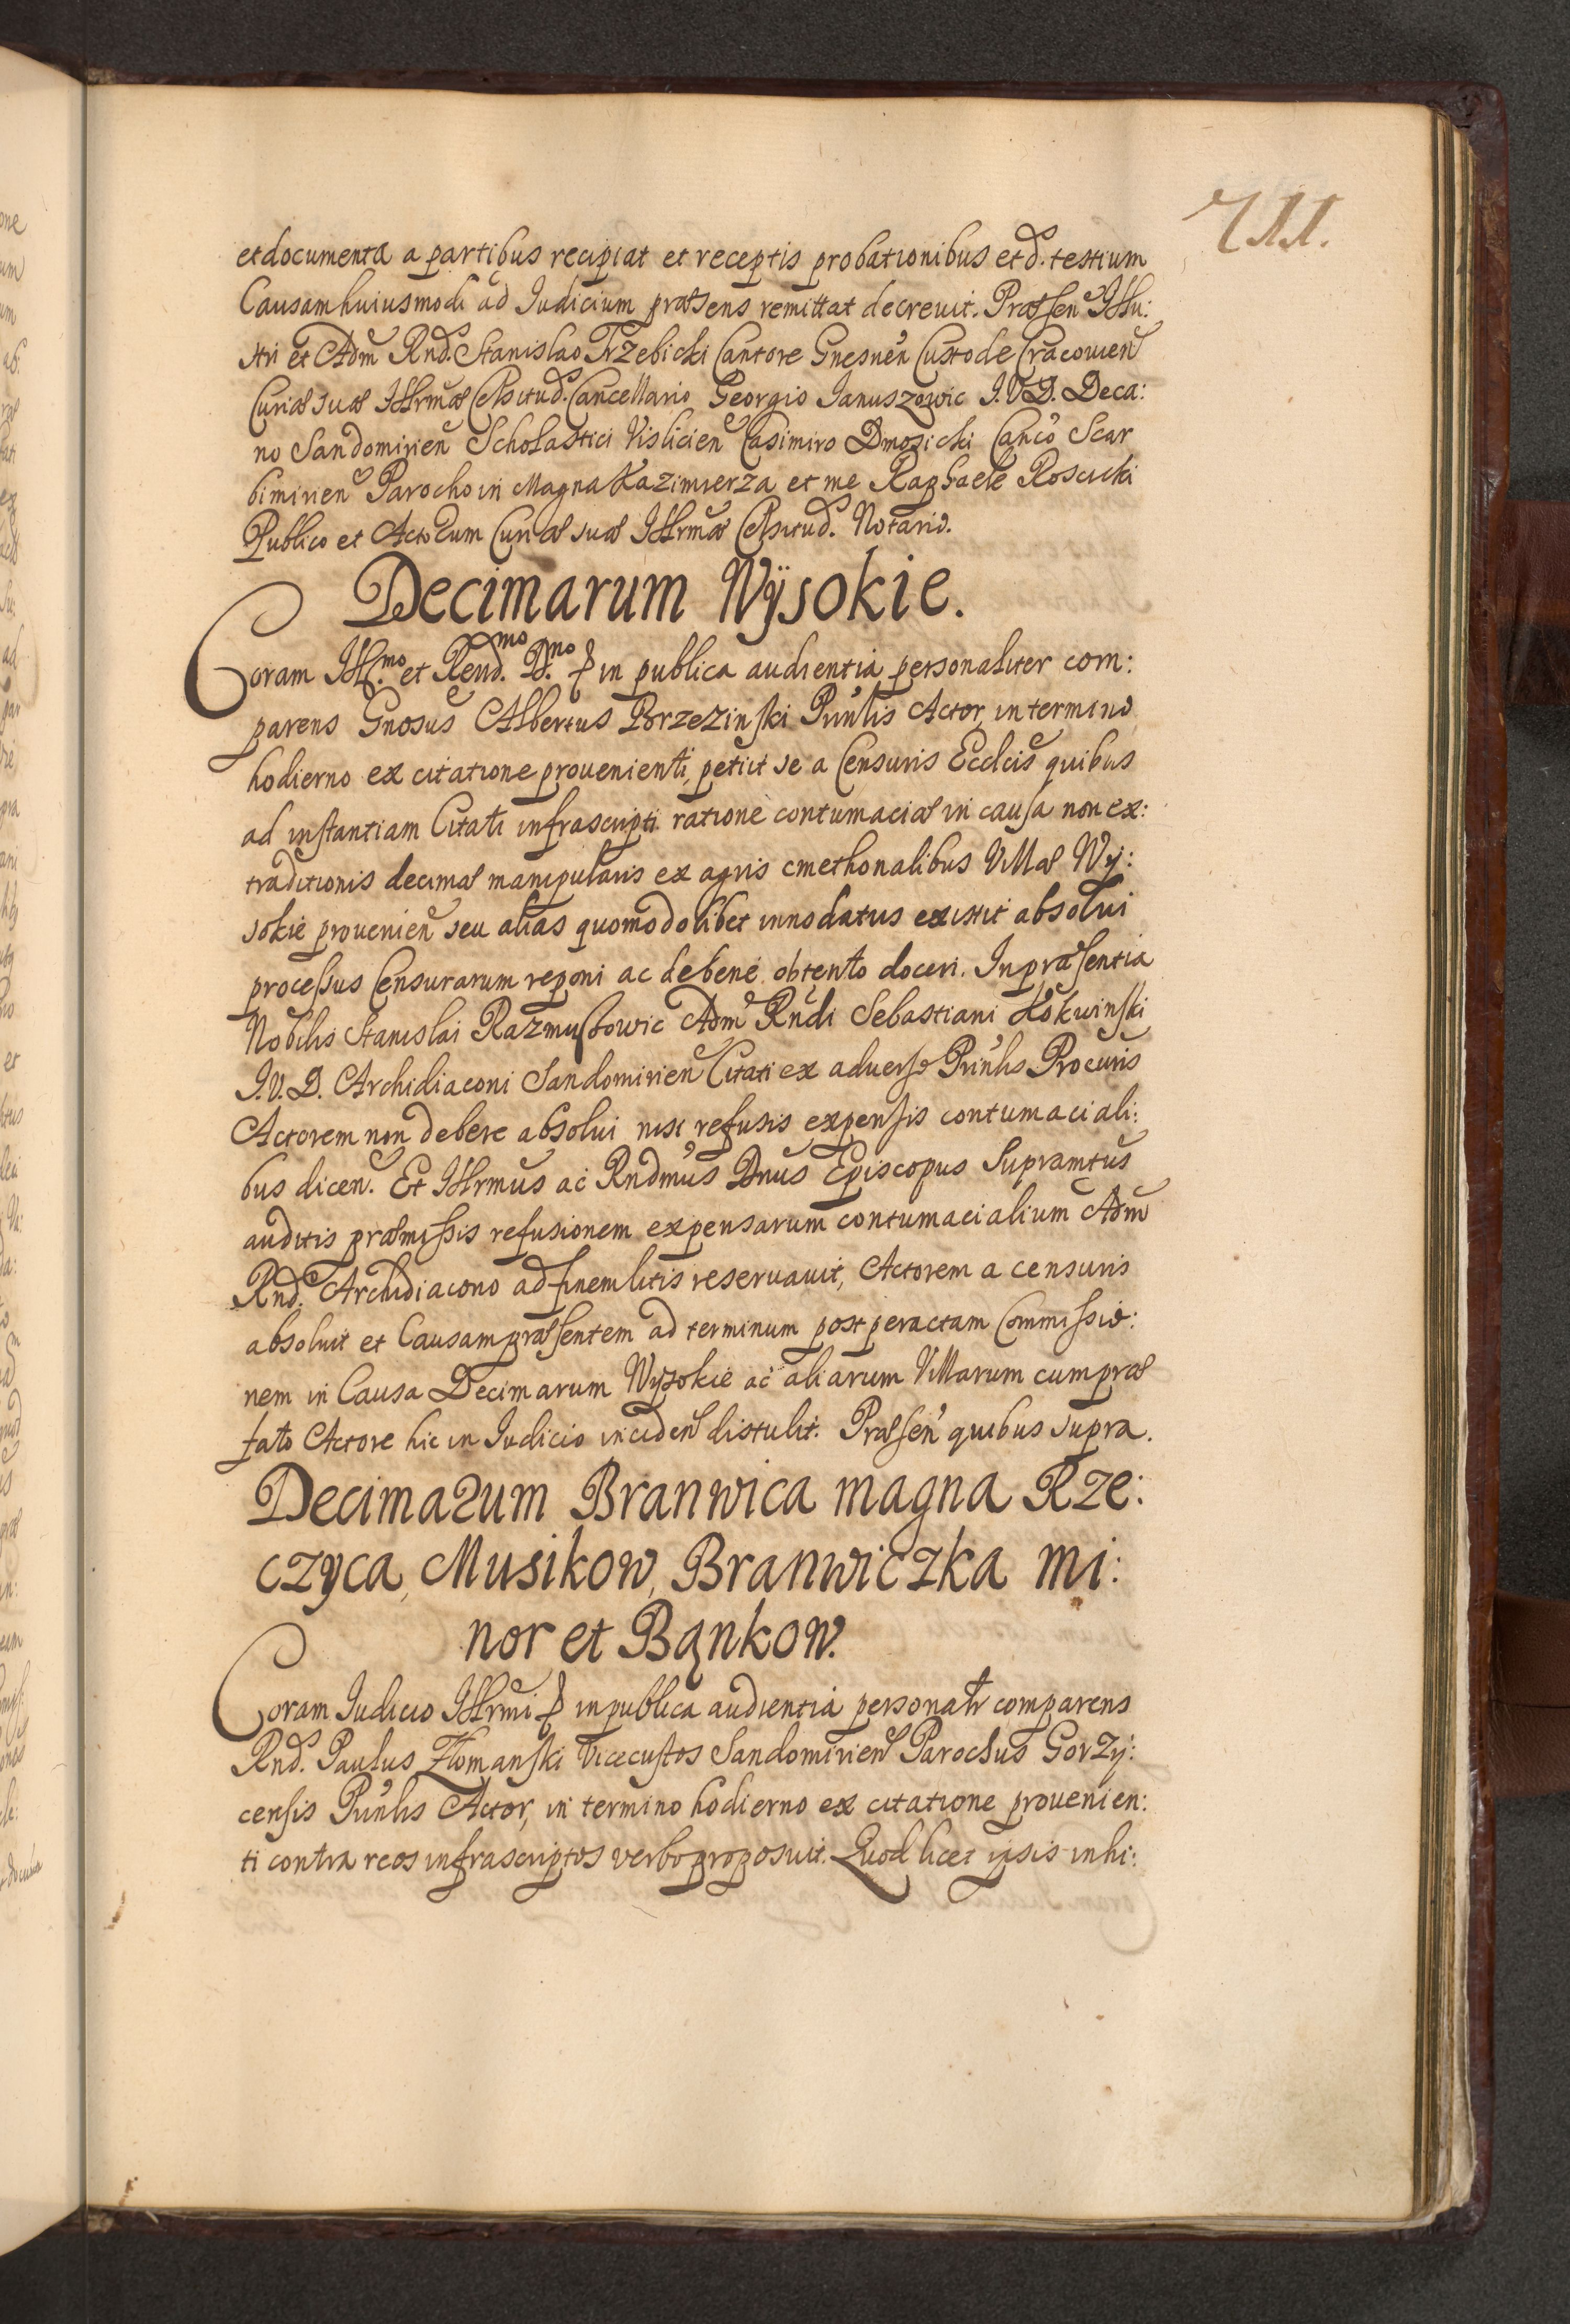 711.
et documenta a partibus recipiat et receptis probationibus et d. testium
Causam huiusmodi ad Iudicium præsens remittat decrevit. Præsen Illu:
stri et Adm Rnd. Stanislao Trzebicki Cantore Gnesnen Custode Cracovien
Curiæ suæ Illrmæ Celsitud. Cancellario Georgio Ianuszowic I.V.D. Deca:
no Sandomirien Scholastici Vislicien Casimiro Dmosicki Canco Scar
bimirien Parocho in Magna Kazimierza et me Raphaele Roscicki
Publico et Actorum Curiæ suæ Illrmæ Celsitud. Notario.
Decimarum Wÿsokie.
Coram Ill.mo et Rend.mo D.no in publica audientia personaliter com:
parens Gnosus Albertus Brzezinski Prinlis Actor, in termino
hodierno ex citatione provenienti, petiit se a Censuris Ecclcis quibus
ad instantiam Citati infrascripti ratione contumaciæ in causa non ex:
traditionis decimæ manipularis ex agris cmethonalibus Villæ Wy:
sokie provenien seu alias quomodolibet innodatus existit absolvi
processus Censurarum reponi ac de bene obtento doceri. In præsentia
Nobilis Stanislai Razmussowic Adm Rndi Sebastiani Kokwinski
I.V.D. Archidiaconi Sandomirien Citati ex adverso Prinlis Procuris
Actorem non debere absolvi nisi refusis expensis contumaciali:
bus dicen. Et Illrmus ac Rndmus Dnus Episcopus Supramtus
auditis præmissis refusionem expensarum contumacialium Adm
Rnd. Archidiacono ad finem litis reservavit, Actorem a censuris
absolvit et Causam præsentem ad terminum post peractam Commissio:
nem in Causa Decimarum Wysokie ac aliarum Villarum cum præ
fato Actore hic in Iudicio inciden distulit. Præsen quibus supra.
Decimarum Branwica magna Rze:
czyca, Musikow, Branwiczka mi:
nor et Bąnkow.
Coram Iudicio Illrmi in publica audientia personalr comparens
Rnd. Paulus Złomanski Vicecustos Sandomirien Parochus Gorzy:
censis Prinlis Actor, in termino hodierno ex citatione provenien:
ti contra reos infrascriptos verbo proposuit. Quod licet ipsis inhi: